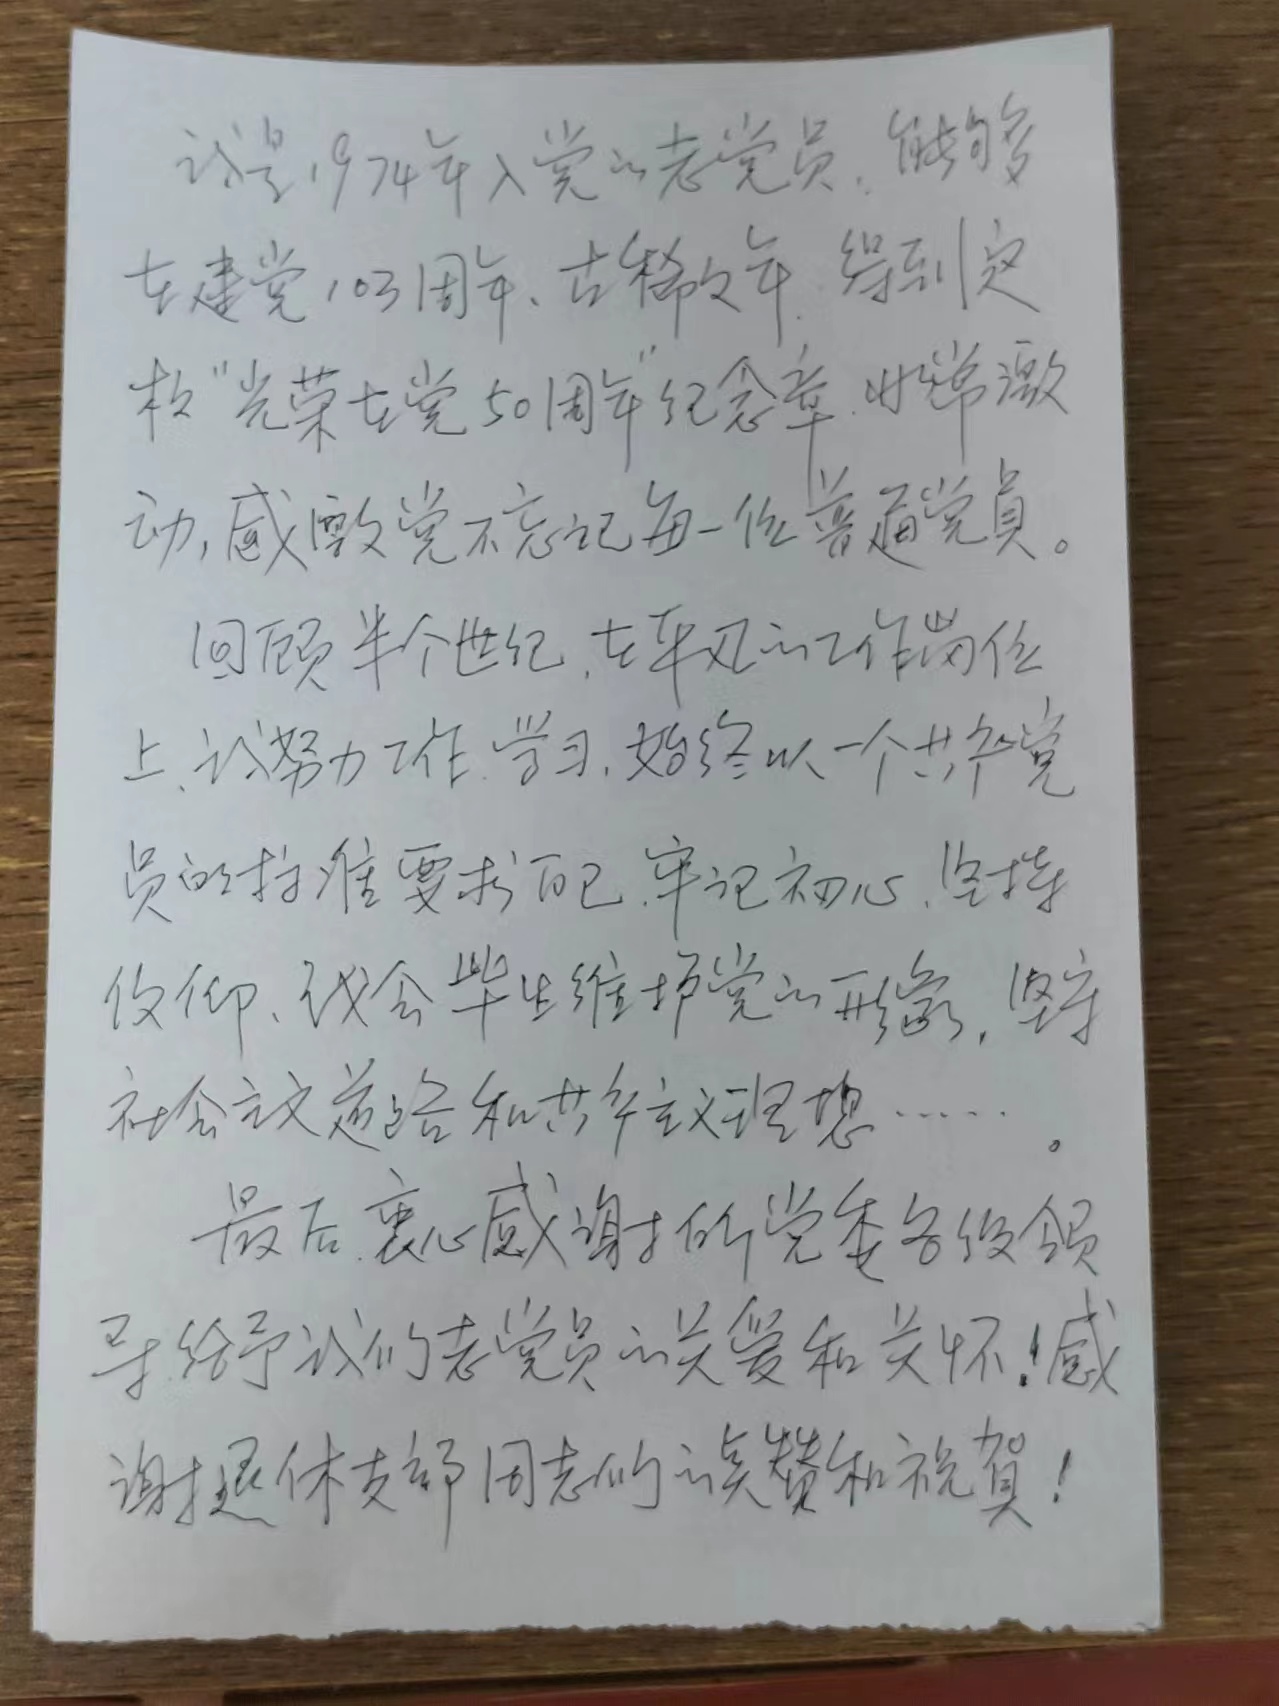 我是1974年入党的老党员，能够
在建党103周年、古稀之年，得到这
枚“光荣在党50周年”纪念章，非常激
动，感激党不忘记每一位普通党员。
回顾半个世纪，在平凡的工作岗位
上，我努力工作、学习，始终以一个共产党
员的标准要求自己，牢记初心、坚持
信仰、我会毕生维护党的形象，坚守
社会主义道路和共产主义理想……。
最后，衷心感谢所党委各级领
导给予我们老党员的关爱和关怀！感
谢退休支部同志们的点赞和祝贺！